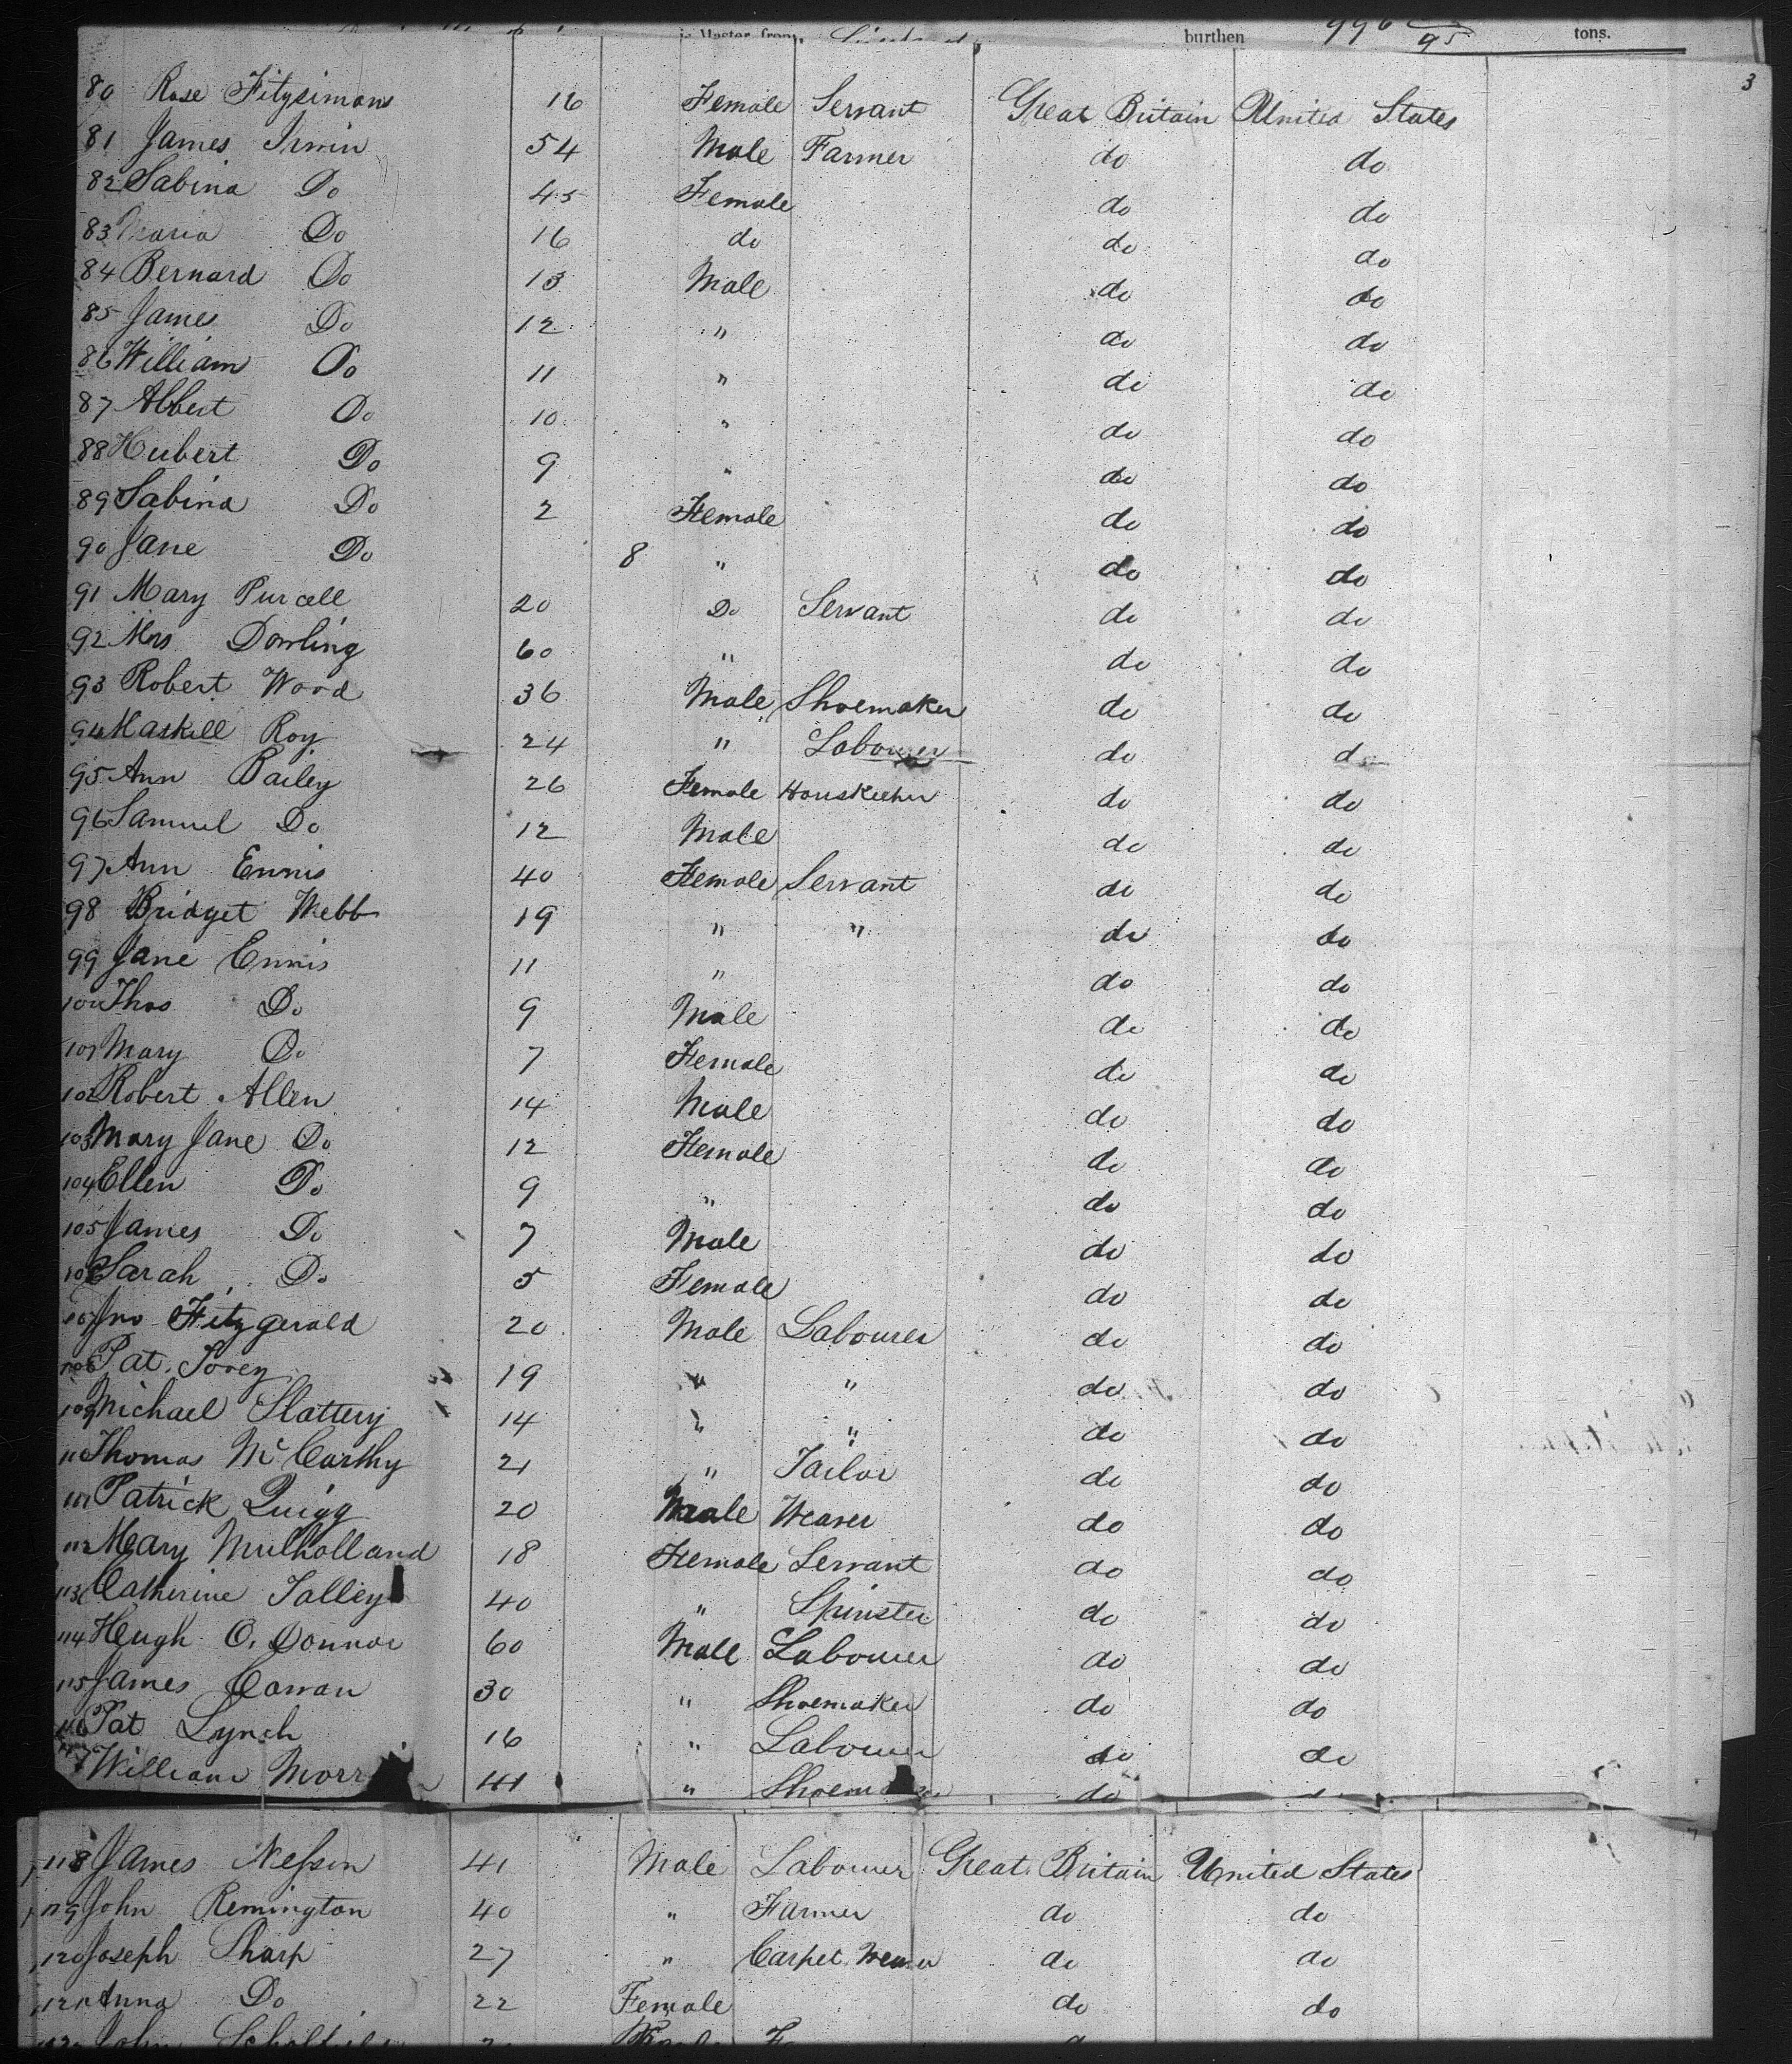 is Master, from, burthen 996 /95 tons.
3
80 Rose Fitzsimons 16 Female Servant Great Britain United States
81 James Irwin 54 Male Farmer do do
82 Sabina Do 45 Female do do
83 Maria Do 16 do do do
84 Bernard Do 13 Male do do
85 James Do 12 " do do
86 William Do 11 " do do
87 Albert Do 10 " do do
88 Hubert Do 9 " do do
89 Sabina Do 2 Female do do
90 Jane Do 8 " do do
91 Mary Purcell 20 Do Servant do do
92 Mrs Dowling 60 " do do
93 Robert Wood 36 Male Shoemaker do do
94 Maskell Roy 24 " Labourer do do
95 Ann Bailey 26 Female Houskeeher do do
96 Samuel Do 12 Male do do
97 Ann Ennis 40 Female Servant do do
98 Bridget Webb 19 " " do do
99 Jane Ennis 11 " do do
100 Thos Do 9 Male do do
101 Mary Do 7 Female do do
102 Robert Allen 14 Male do do
103 Mary Jane Do 12 Female do do
104 Ellen Do 9 " do do
105 James Do 7 Male do do
106 Sarah Do 5 Female do do
107 Jno Fitzgerald 20 Male Labourer do do
108 Pat. 19 " " do do
109 Michael Slattery 14 " " do do
110 Thomas McCarthy 21 " Tailor do do
111 Patrick Quigg 20 Male Weaver do do
112 Mary Mulholland 18 Female Servant do do
113 Catherine Talley 40 " Spinster do do
114 Hugh O. Connor 60 Male Labourer do do
115 James Cowan 30 " Shoemaker do do
116 Pat Lynch 16 " Labourer do do
117 William 41 " do
118 James Nesson 41 Male Labourer Great Britain United States
119 John Remington 40 " Farmer do do
120 Joseph Sharp 27 " Carpet Weaver do do
121 Anna Do 22 Female do do
John